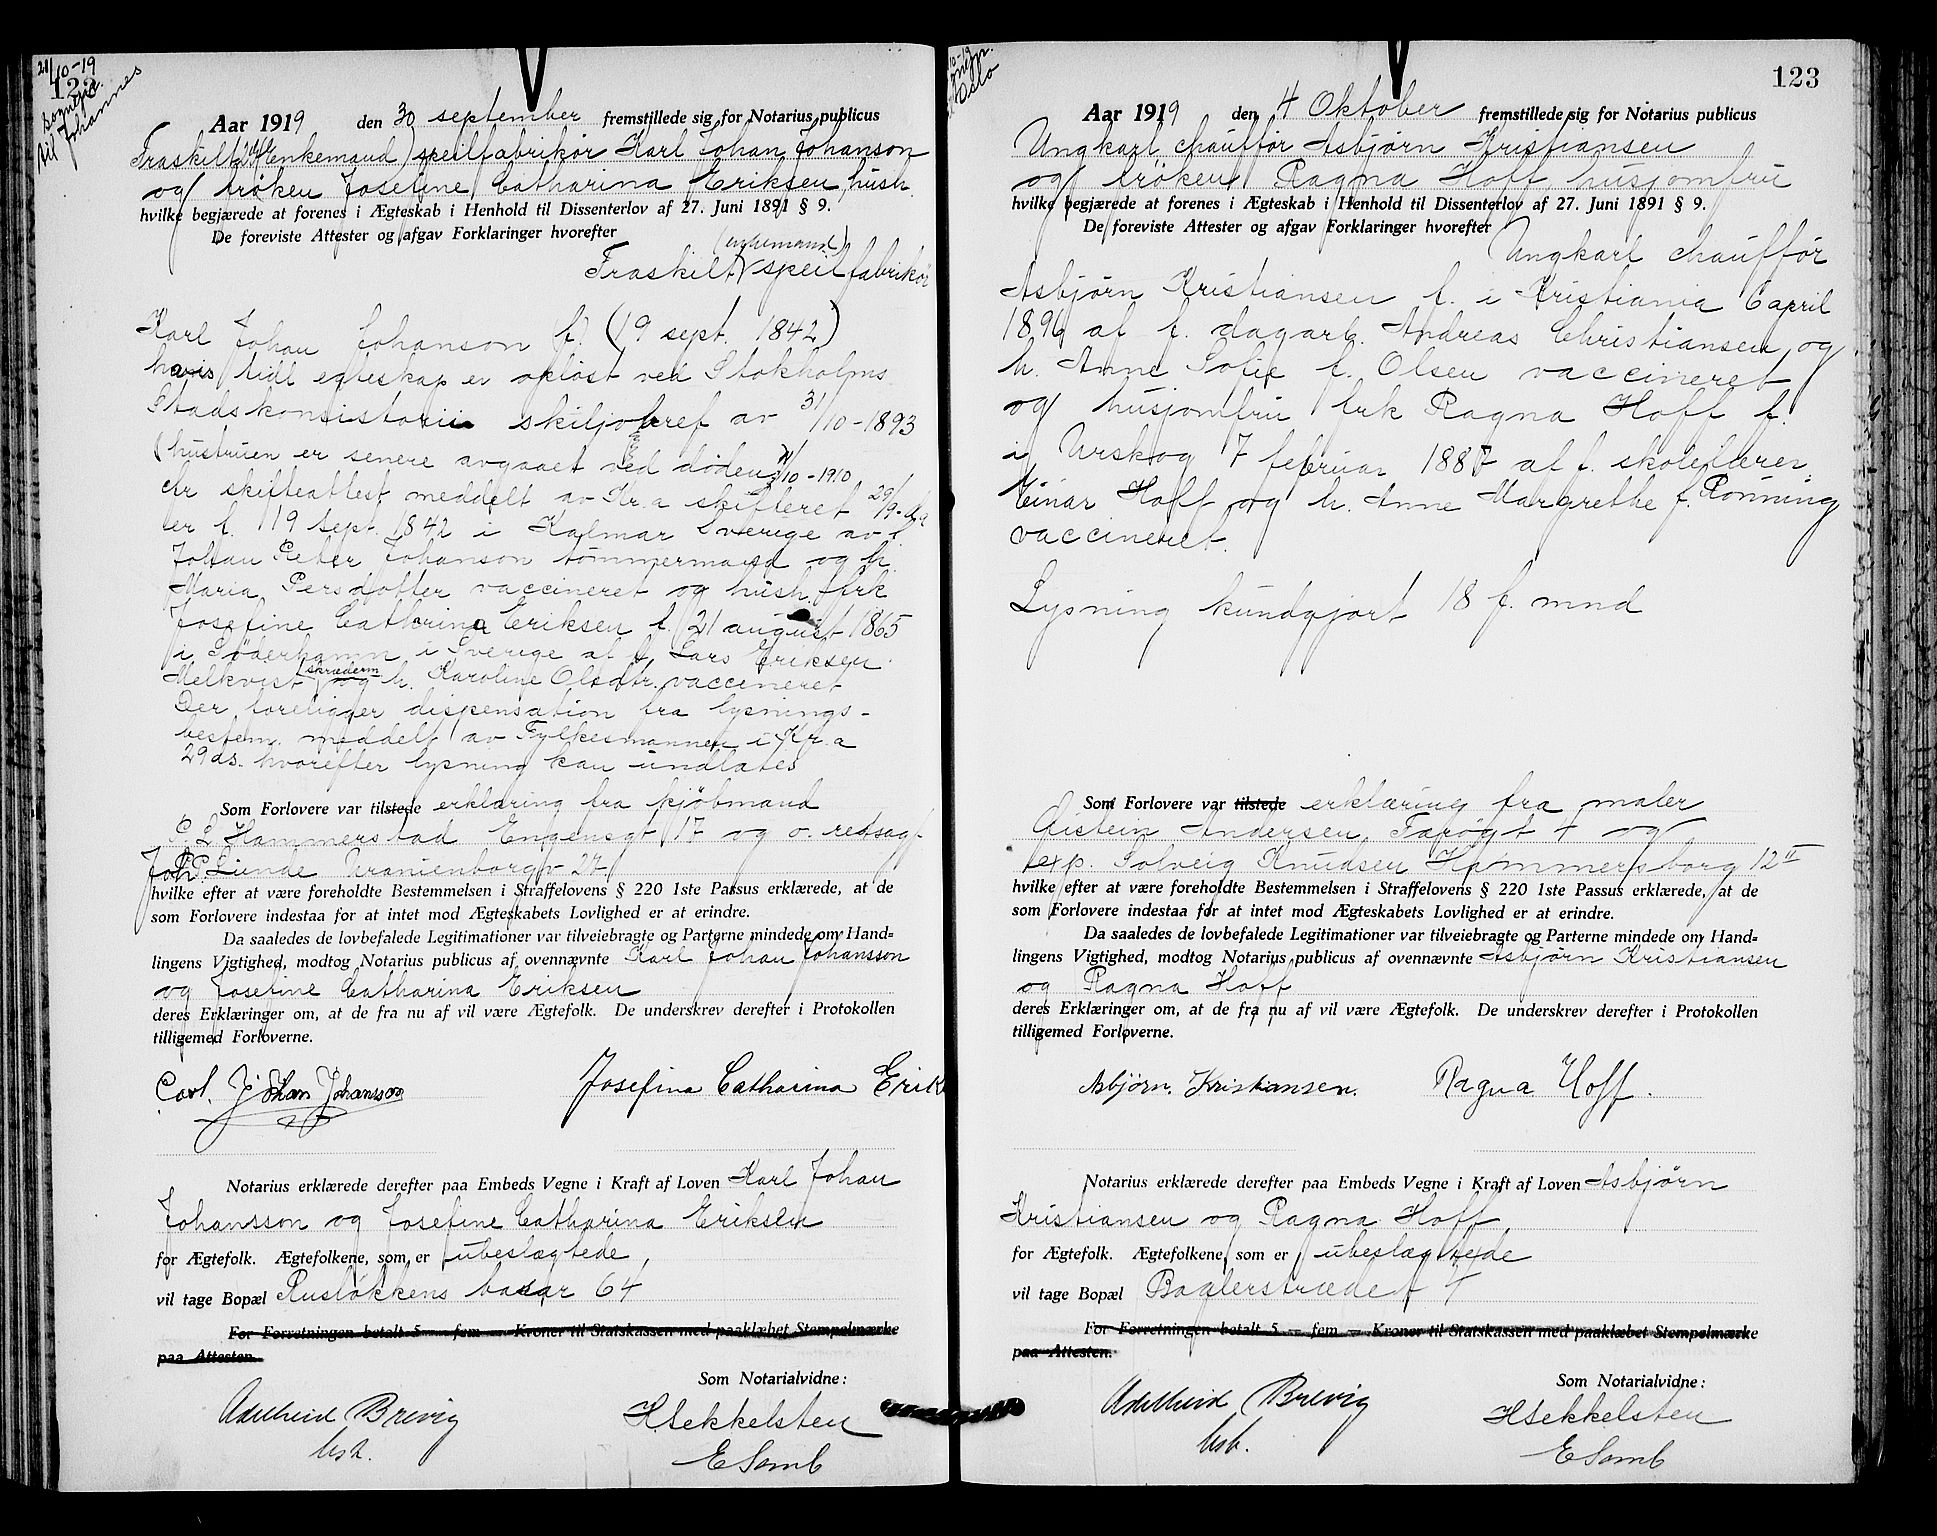 21/10-19
122
Sognepr.
til Johannes
Aar 1919 den 30 september fremstillede sig for Notarius publicus
Fraskilt (enkemand) speilfabrikør Karl Johan Johanson
og frøken Josefine Catharina Eriksen hush.
hvilke begjærede at forenes i Ægteskab i Henhold til Dissenterlov af 27. Juni 1891 § 9.
De foreviste Attester og afgav Forklaringer hvorefter
(enkemand)
Fraskilt speilfabrikør
Karl Johan Johanson f. (19 sept. 1842)
hvis tidl egteskap er opløst ved Stokholms
Stadskonsistorii skiljobref av 31/10-1893
(hustruen er senere avgaaet ved døden /10-1910
efr skifteattest meddelt av Kr.a skifteret 29/9-
er f. 19 sept. 1842 i Kalmar Sverige av f.
Johan Peter Johanson tømmermand og h.
Maria Persdotter vaccineret og hush. frk
Josefine Catharina Eriksen f. (21 august 1865
i Söderhamn i Sverige af f. Lars Eriksen
Melkvist skræderm og h. Karoline Olsdtr. vaccineret
Der foreligger dispensation fra lysnings-
bestem. meddelt av Fylkesmannen i Kr.a
29 ds. hvorefter lysning kan undlates
Som Forlovere var tilstede erklæring fra kjøbmand
C. L Hammerstad Engensgt 17 og o. retssagf.
Joh P. Lunde Uranienborgv 27
hvilke efter at være foreholdte Bestemmelsen i Straffelovens § 220 1ste Passus erklærede, at de
som Forlovere indestaa for at intet mod Ægteskabets Lovlighed er at erindre.
Da saaledes de lovbefalede Legitimationer var tilveiebragte og Parterne mindede om Hand-
lingens Vigtighed, modtog Notarius publicus af ovennævnte Karl Johan Johansson
og Josefine Catharina Eriksen
deres Erklæringer om, at de fra nu af vil være Ægtefolk. De underskrev derefter i Protokollen
tilligemed Forloverne.
Carl. Johan Johansson Josefina Catharina Erik
Notarius erklærede derefter paa Embeds Vegne i Kraft af Loven Karl Johan
Johansson og Josefine Catharina Eriksen
for Ægtefolk. Ægtefolkene, som er ubeslægtede
vil tage Bopæl Rusløkkens basar 64
For Forretningen betalt 5 — fem — Kroner til Statskassen med paaklæbet Stempelmærke
paa Attesten.
Som Notarialvidne:
Adelheid Brevig Hsekkelsten
bsh. E Somb
123
10-19
Sognepr.
Oslo
Aar 1919 den 4 Oktober fremstillede sig for Notarius publicus
Ungkarl, chauffør Asbjørn Kristiansen
og frøken Ragna Hoff, husjomfru
hvilke begjærede at forenes i Ægteskab i Henhold til Dissenterlov af 27. Juni 1891 § 9.
De foreviste Attester og afgav Forklaringer hvorefter
Ungkarl chauffør
Asbjørn Kristiansen f. i Kristiania 6 april
1896 af f. dagarb. Andreas Christiansen og
h. Anne Sofie f. Olsen vaccineret
og husjomfru frk Ragna Hoff f.
i Urskog 7 februar 1887 af f. skolelærer
Einar Hoff og h. Anne Margrethe f. Rønning
vaccineret.
Lysning kundgjort 18 f. mnd
Som Forlovere var tilstede erklæring fra maler
Øistein Andersen, Færøgt 4 og
exp. Solveig Knudsen Hammersborg 12 II
hvilke efter at være foreholdte Bestemmelsen i Straffelovens § 220 1ste Passus erklærede, at de
som Forlovere indestaa for at intet mod Ægteskabets Lovlighed er at erindre.
Da saaledes de lovbefalede Legitimationer var tilveiebragte og Parterne mindede om Hand-
lingens Vigtighed, modtog Notarius publicus af ovennævnte Asbjørn Kristiansen
og Ragna Hoff
deres Erklæringer om, at de fra nu af vil være Ægtefolk. De underskrev derefter i Protokollen
tilligemed Forloverne.
Asbjørn. Kristiansen. Ragna Hoff.
Notarius erklærede derefter paa Embeds Vegne i Kraft af Loven Asbjørn
Kristiansen og Ragna Hoff
for Ægtefolk. Ægtefolkene, som er ubeslægtede
vil tage Bopæl Baglerstrædet 4
For Forretningen betalt 5 — fem — Kroner til Statskassen med paaklæbet Stempelmærke
paa Attesten.
Som Notarialvidne:
Adelheid Brevig Hsekkelsten
bsh. E Somb